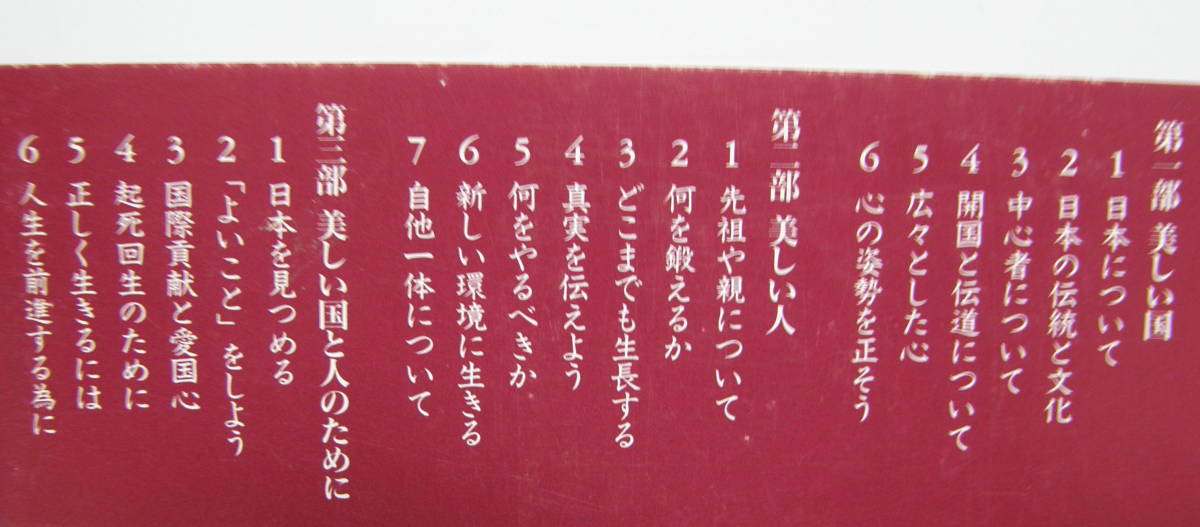 第一部 美しい国
1 日本について
2 日本の伝統と文化
3 中心者について
4 開国と伝道について
5 広々とした心
6 心の姿勢を正そう
第二部 美しい人
1 先祖や親について
2 何を鍛えるか
3 どこまでも生長する
4 真実を伝えよう
5 何をやるべきか
6 新しい環境に生きる
7 自他一体について
第三部 美しい国と人のために
1 日本を見つめる
2 「よいこと」をしよう
3 国際貢献と愛国心
4 起死回生のために
5 正しく生きるには
6 人生を前進する為に